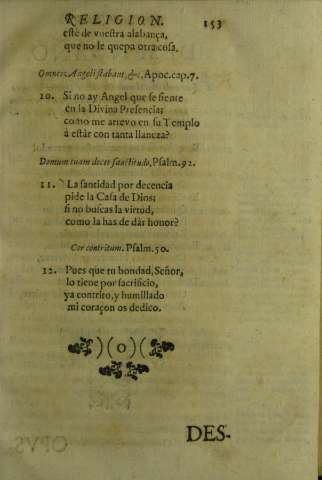 RELIGION. 153
esté de vuestra alabança,
que no le quepa otra cosa.
Omnes Angeli stabant, &c. Apoc. cap. 7.
10. Si no ay Angel que se siente
en la Divina Presencia;
como me atrevo en su Templo
á estár con tanta llaneza?
Domum tuam decet sanctitudo, Psalm. 92.
11. La santidad por decencia
pide la Casa de Dios;
si no buscas la virtud,
como la has de dár honor?
Cor contritum. Psalm. 50.
12. Pues que tu bondad, Señor,
lo tiene por sacrificio,
ya contrito, y humillado
mi coraçon os dedico.
)(o)(
DES-